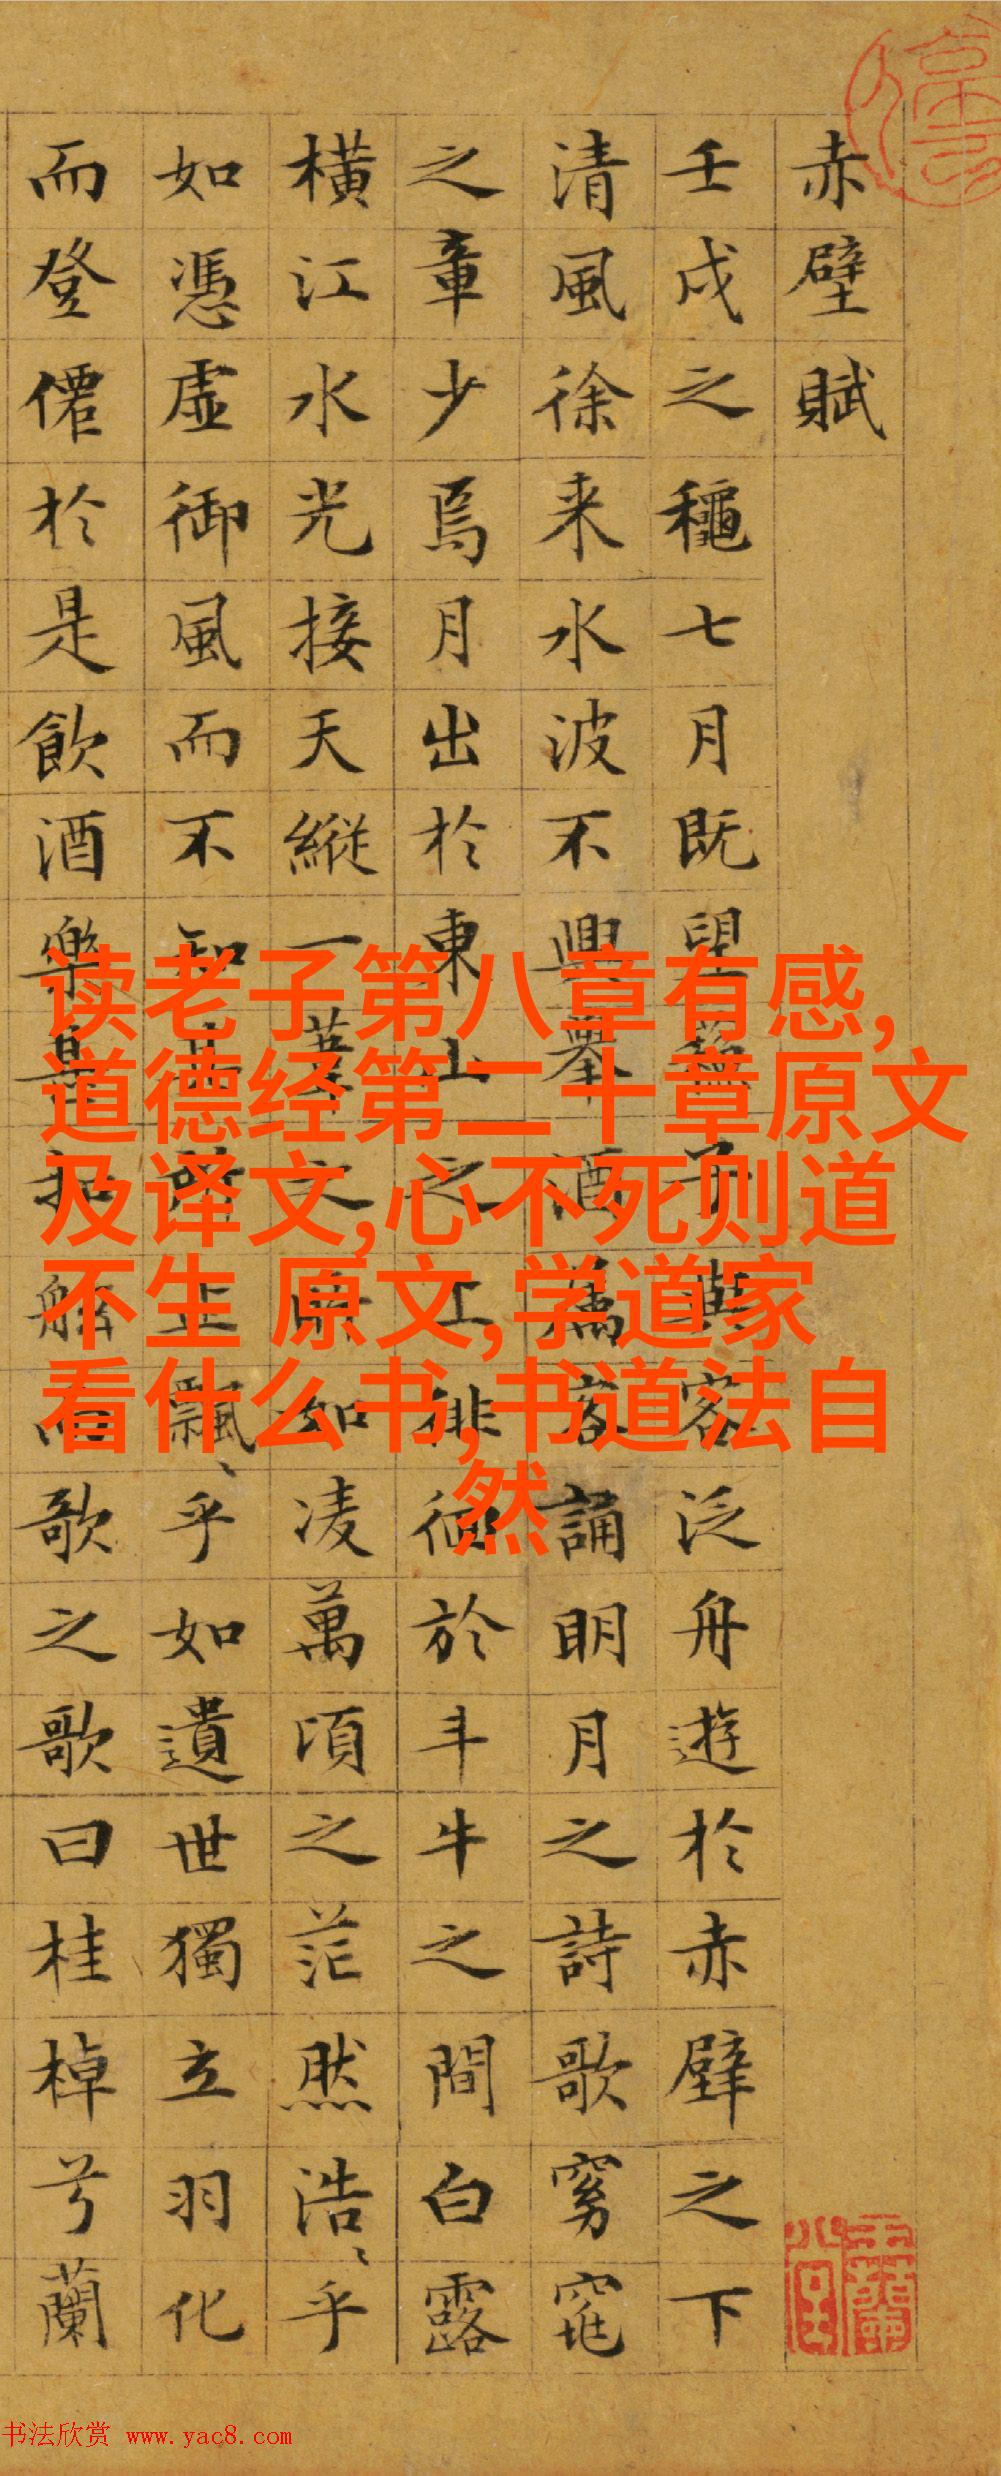 赤壁賦
壬戌之穐七月既望蘓子與客泛舟遊於赤壁之下
清風徐来水波不興舉酒屬客誦明月之詩歌窈窕
之章少焉月出於東山之上徘徊於斗牛之間白露
橫江水光接天縱一葦之所如凌萬頃之茫然浩〻乎
如憑虛御風而不知其所止飄〻乎如遺世獨立羽化
而登僊於是飲酒樂甚扣舷而歌之歌曰桂棹兮蘭
读老子第八章有感,
道德经第二十章原文
及译文,心不死则道
不生 原文,学道家
看什么书,书道法自
然
书法欣赏 www.yac8.com